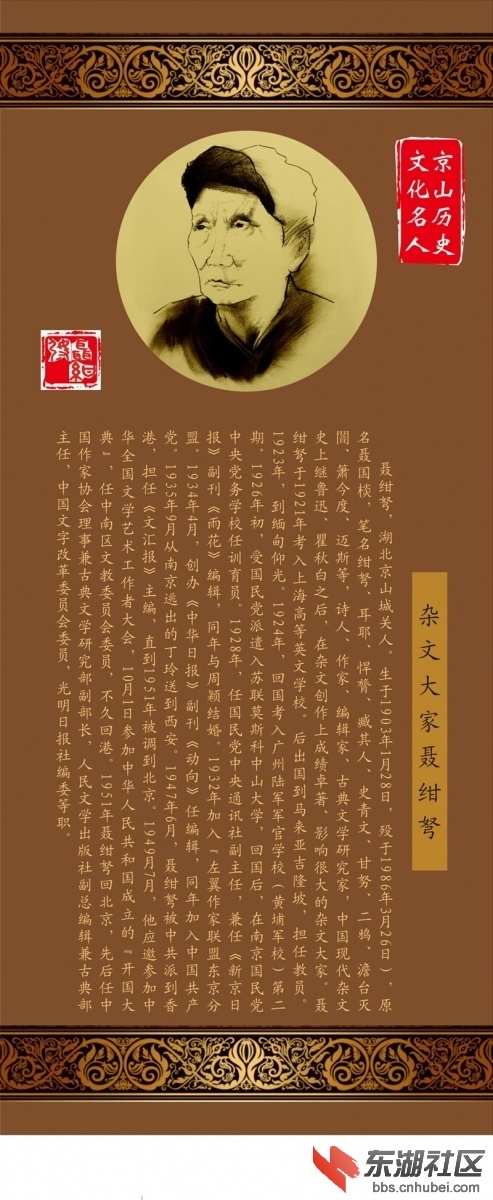 京山历史
文化名人
聂绀
弩
杂文大家聂绀弩
聂绀弩，湖北京山城关人。生于1903年1月28日，殁于1986年3月26日），原
名聂国棪，笔名绀弩、耳耶、悍膂、臧其人、史青文、甘努、二鸦、澹台灭
闇、萧今度、迈斯等，诗人、作家、编辑家、古典文学研究家，中国现代杂文
史上继鲁迅、瞿秋白之后，在杂文创作上成绩卓著、影响很大的杂文大家。聂
绀弩于1921年考入上海高等英文学校。后出国到马来亚吉隆坡，担任教员。
1923年，到缅甸仰光。1924年，回国考入广州陆军军官学校（黄埔军校）第二
期。1926年初，受国民党派遣入苏联莫斯科中山大学，回国后，在南京国民党
中央党务学校任训育员。1928年，任国民党中央通讯社副主任，兼任《新京日
报》副刊《雨花》编辑，同年与周颖结婚。1932年加入『左翼作家联盟东京分
盟。1934年4月，创办《中华日报》副刊《动向》任编辑，同年加入中国共产
党。1935年9月从南京逃出的丁玲送到西安。1947年6月，聂绀弩被中共派到香
港，担任《文汇报》主编，直到1951年被调到北京。1949月7月，他应邀参加中
华全国文学艺术工作者大会，10月1日参加中华人民共和国成立的『开国大
典』，任中南区文教委员会委员，不久回港。1951年聂绀弩回北京，先后任中
国作家协会理事兼古典文学研究部副部长，人民文学出版社副总编辑兼古典部
主任，中国文字改革委员会委员，光明日报社编委等职。
东湖社区
bbs.cnhubei.com